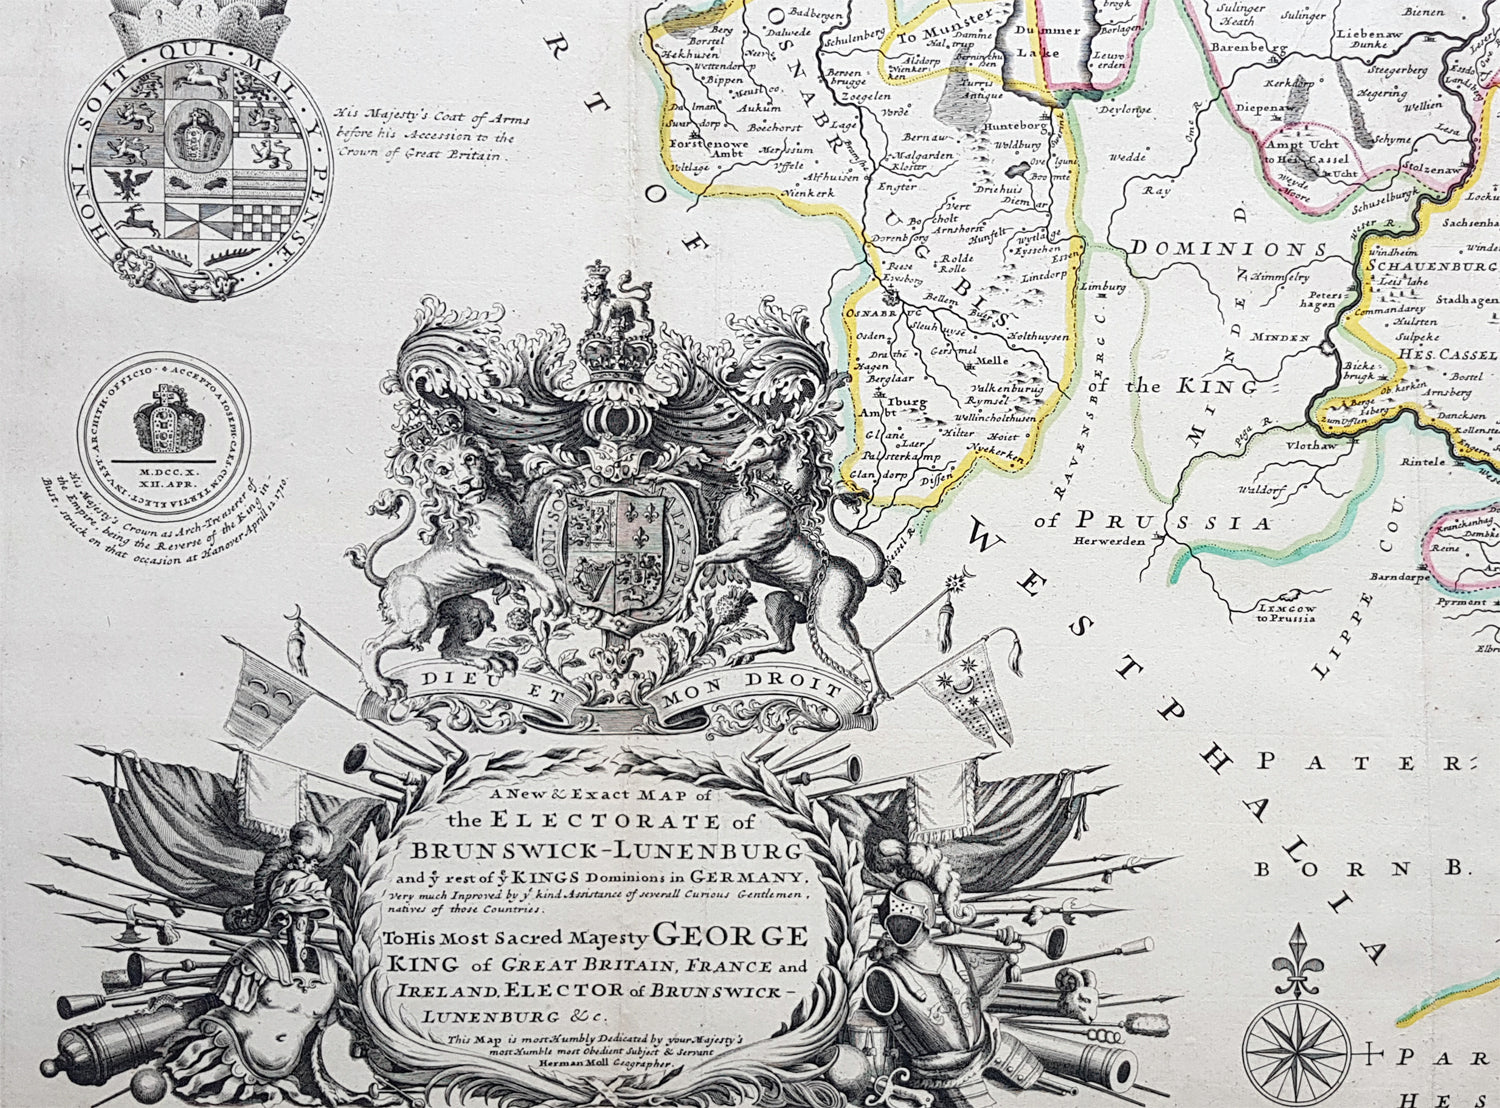 HONI · SOIT · QUI · MAL · Y · PENSE ·
His Majesty's Coat of Arms
before his Accession to the
Crown of Great Britain.
ACCEPTO A IOSEPHO CÆS. CUM TERTIA ELECT. INVEST. ARCHITH. OFFICIO
M.DCC.X.
XII. APR.
His Majesty's Crown as Arch-Tresurer of
the Empire, being the Reverse of the King's in-
Bust struck on that occasion at Hanover April 12 1710.
DIEU ET MON DROIT
A New & Exact MAP of
the ELECTORATE of
BRUNSWICK-LUNENBURG
and yͤ rest of yͤ KINGS Dominions in GERMANY.
Very much Inproved by yͤ kind Assistance of severall Curious Gentlemen,
natives of those Countries.
To His Most Sacred Majesty GEORGE
KING of GREAT BRITAIN, FRANCE and
IRELAND, ELECTOR of BRUNSWICK-
LUNENBURG &c.
This Map is most Humbly Dedicated by your Majesty's
most Humble most Obedient Subject & Servant
Herman Moll Geographer.
RT OF WESTPHALIA
OSNABRUGBIS
Badbergen
Dalwede
Schulenberg
To Munster
Damme
Dummer
Lake
Borlagen
Sulinger
Heath
Sulinger
Bienen
Liebenaw
Dunke
Barenberg
Steegerberg
Kerkdorp
Hegering
Wellien
Berg
Borstel
Hekhusen
Wettendorp
Bippen
Aukum
Boechorst
Forstenowe
Ambt
Voltlage
Merssum
Uffele
Alfhuisen
Nienkerk
Bersen
brugge
Zoegelen
Vorde
Lage
Bernaw
Malgarden
Kloster
Engter
Alsdorp
Nienker
ken
Turris
Antique
Hunteborg
Woldburg
Driehuis
Diemar
Deylonge
Diepenaw
Ampt Ucht
to Hes. Cassel
Ucht
Weyde
Moore
Schyme
Lesa
Stolzenaw
Schuselburgk
Wedde
Ray
Weser R.
Vert
Bocholt
Arnshorst
Hunfelt
Wytlage
Eysschen
Essen
Lintdorp
Limburg
Rolde
Rolle
OSNABRUG
Bellem
Holthuysen
Osden
Gersmel
Melle
Hagen
Berglaar
Iburg
Ambt
Valkenburug
Rymsel
Wellincholthusen
Glane
Laer
Hilter
Hoiet
Palsterkamp
Nyekerken
Glandorp
Dissen
Wessel R.
DOMINIONS
of the KING
of PRUSSIA
MINDEN D.
RAVENSBERG C.
Himmselry
Peters-
hagen
MINDEN
Windheim
SCHAUENBURG
Stadhagen
Commandarey
Hulsten
Sulpeke
HES. CASSEL
Bicke
brugk
Bostel
Arnsberg
Dancksen
Vlothaw
Rintele
Bega R.
Waldorf
Herwerden
LEMGOW
to Prussia
LIPPE COU.
Barndorpe
Reine
Pyrmont
PATER-
BORN B.
PAR
HES